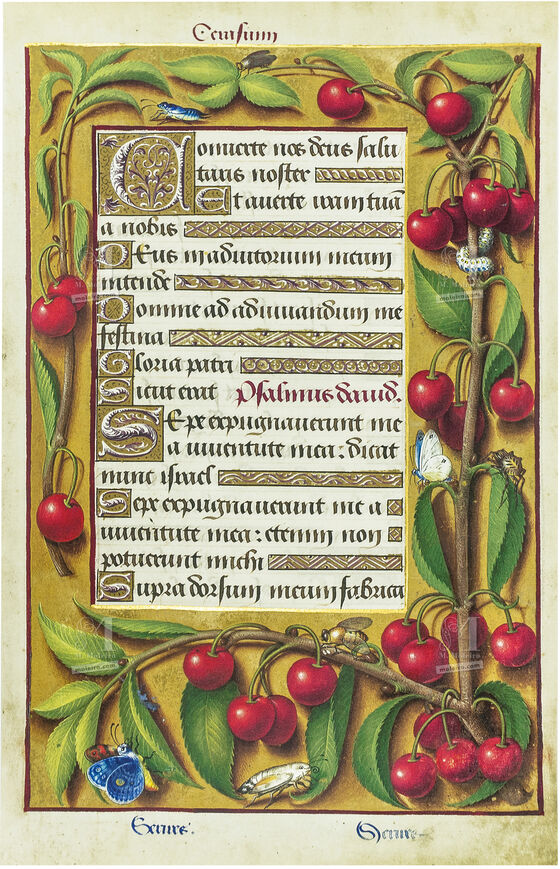 Cerasum
Conuerte nos deus salu
taris noster
Et auerte iram tuā
a nobis
Deus in adiutorium meum
intende
Domine ad adiuuandum me
festina
Gloria patri
Sicut erat Psalmus dauid.
Sepe expugnauerunt me
a iuuentute mea: dicat
nunc israel
Sepe expugnauerunt me a
iuuētute mea: etenim non
potuerunt michi
Supra dorsum meum fabrica